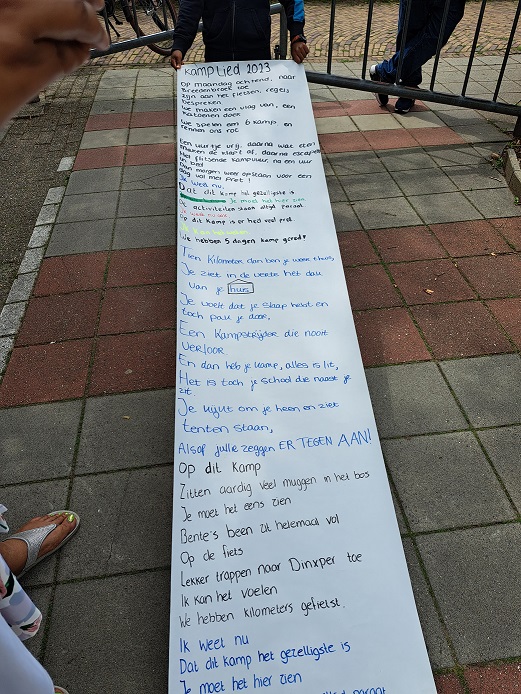 Kamplied 2023
Op maandag ochtend, naar
Breedenbroek toe
zijn aan het fietsen, regels
bespreken
We maken een vlag van, een
Katoenen doek
We spelen een 6 kamp en
rennen ons rot
Een uurtje vrij, daarna wat eten
maken de klaft af, daarna
Het flitsende kampvuur, na een uur
in bed
Dan morgen weer opstaan voor een
dag vol met Pret!
Ik weet nu,
Dat dit kamp het gezelligste is
Je moet het hier zien
De activiteiten staan altijd paraat
Ik weet nu wel
Op dit Kamp is er heel veel pret.
Ik kan het voelen
We hebben 5 dagen kamp gered!
Tien Kilometer dan ben je weer thuis,
Je ziet in de verte het dau
van je huis
Je voelt dat je slaap hebt en
toch pau je door,
Een Kampstrijder die nooit
verloor
En dan heb je kamp, alles is lit,
Het is toch je school die naast je
zit.
Je kijkt om je heen en ziet
tenten staan,
Alsof jullie zeggen ER TEGEN AAN!
Op dit Kamp
Zitten aardig veel muggen in het bos
Je moet het eens zien
Bente's been zit helemaal vol
Op de fiets
Lekker trappen naar Dinxper toe
Ik kan het voelen
We hebben kilometers gefietst.
Ik weet nu
Dat dit kamp het gezelligste is
Je moet het hier zien
paraat